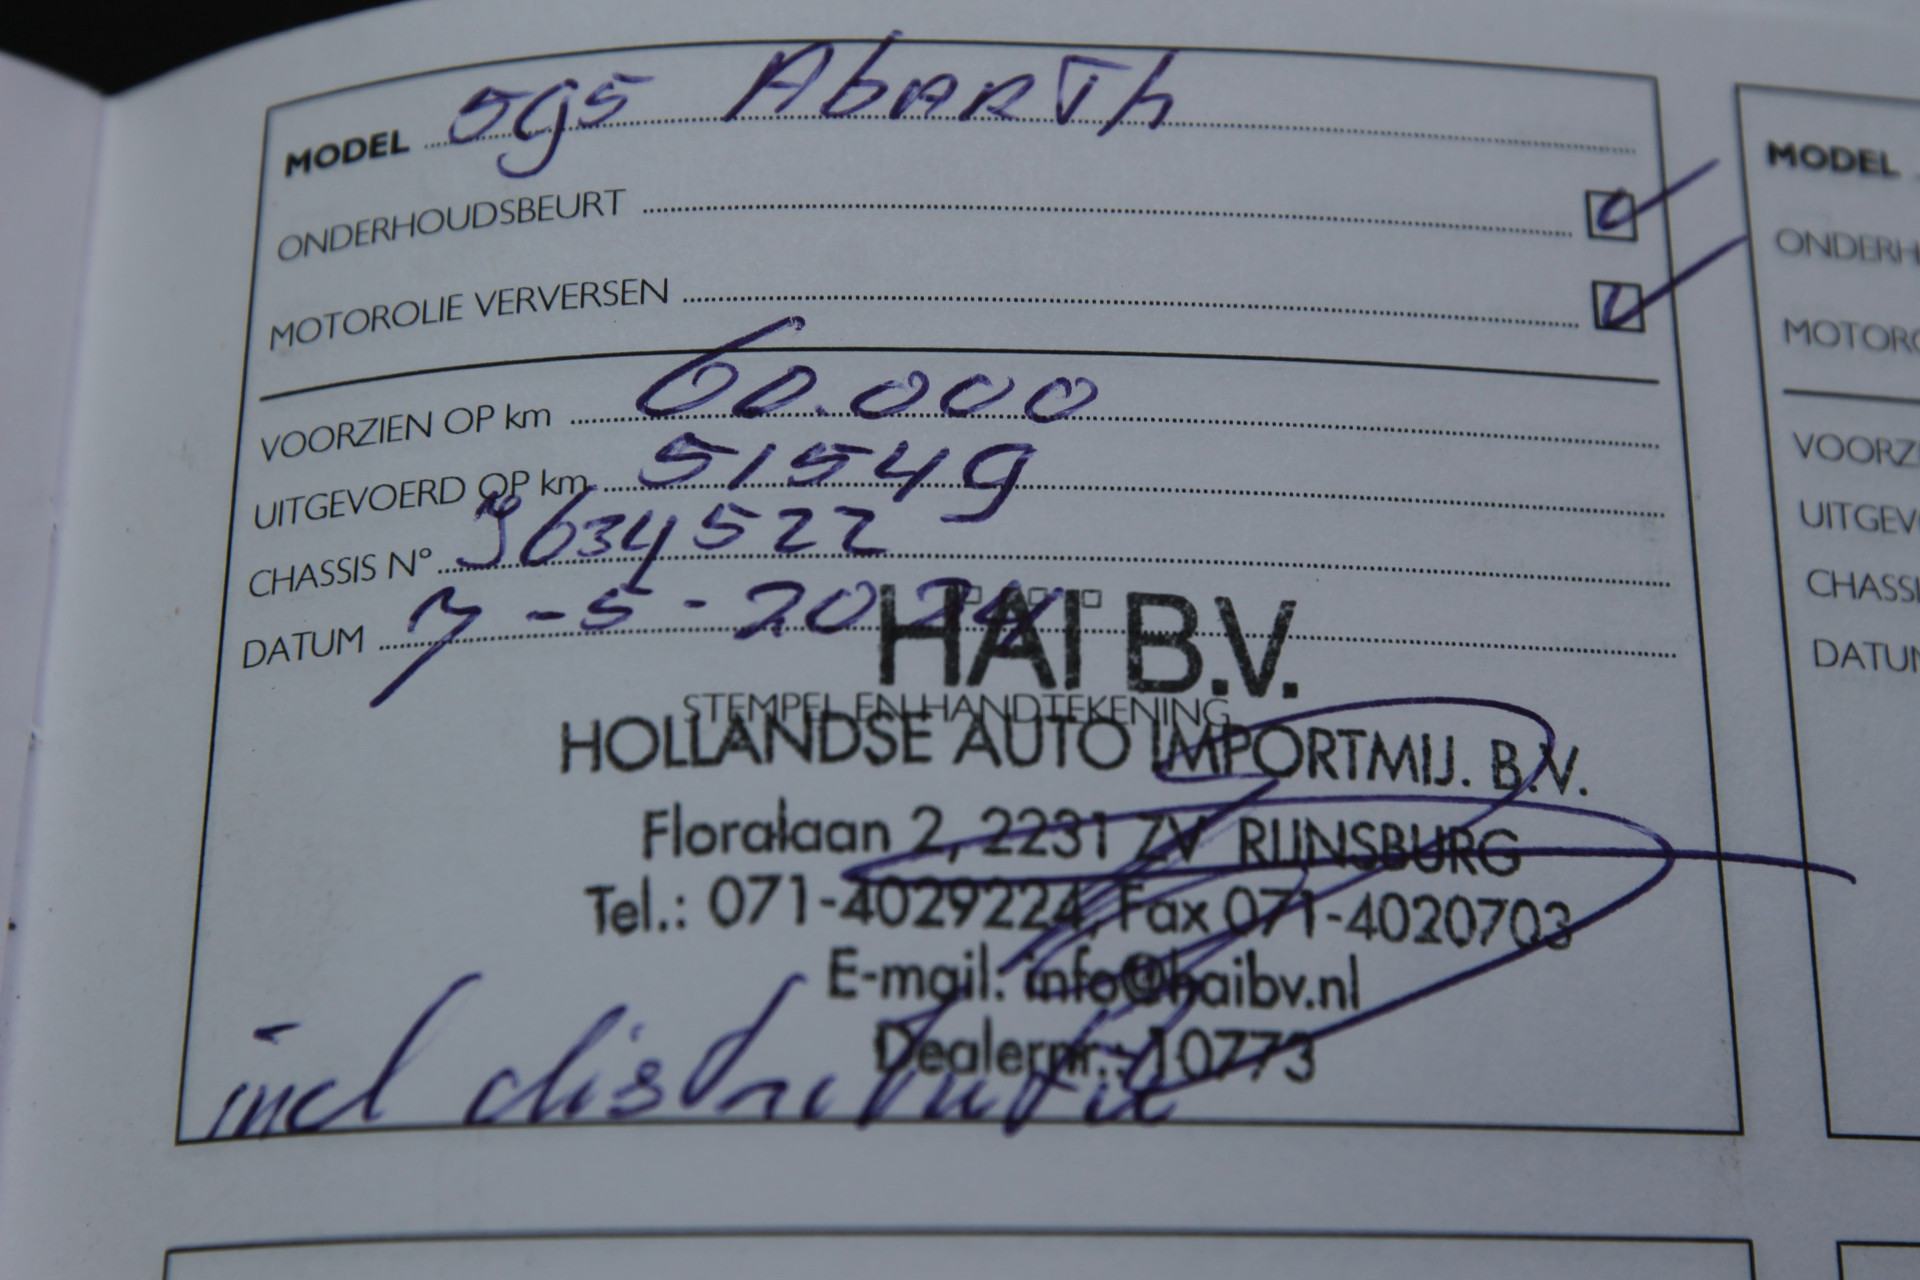 MODEL 595 AbARTh
ONDERHOUDSBEURT
MOTOROLIE VERVERSEN
VOORZIEN OP km 60.000
UITGEVOERD OP km 51549
CHASSIS N° J634522
DATUM 7-5-2024
HAI B.V.
STEMPEL EN HANDTEKENING
HOLLANDSE AUTO IMPORTMIJ. B.V.
Floralaan 2, 2231 ZV RIJNSBURG
Tel.: 071-4029224, Fax 071-4020703
E-mail: info@haibv.nl
Dealernr.: 10773
incl distributie
MODEL
ONDERH
MOTORO
VOORZ
UITGEV
CHASSI
DATUM